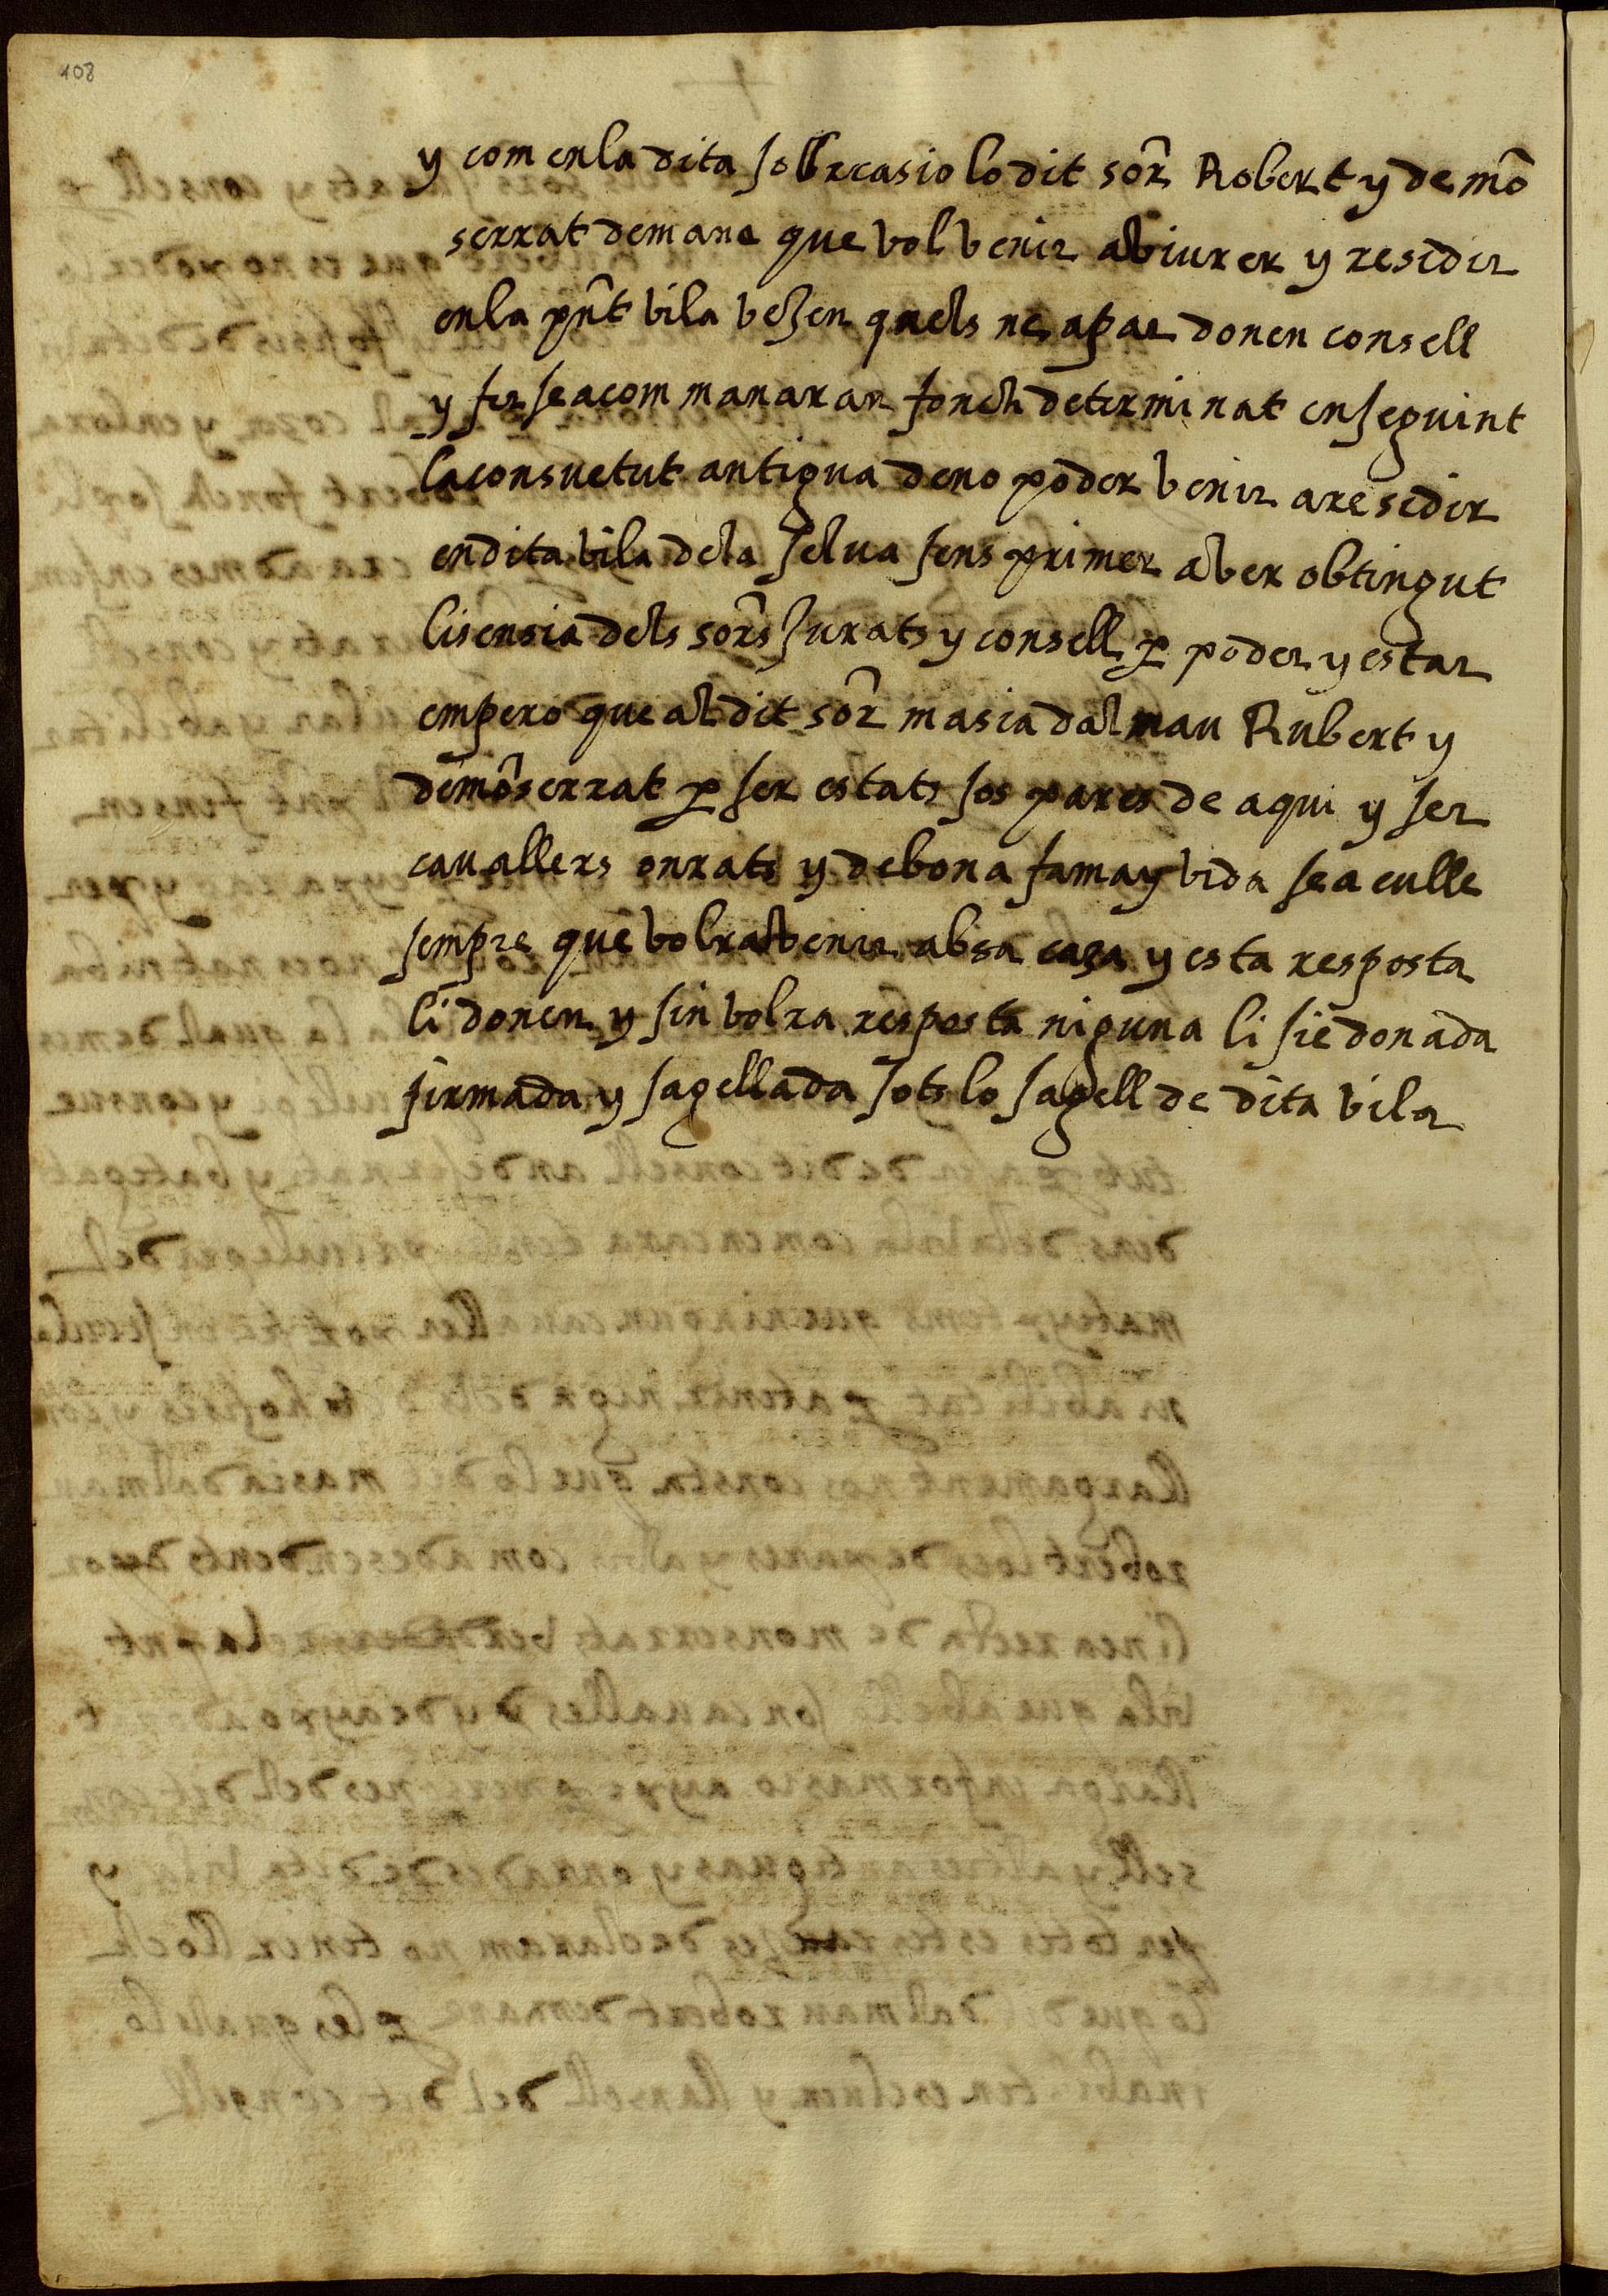 108
y com en la dita sobrecasio lo dit sor̃ Robert y de mõ
serrat demane que vol venir abiurer y residir
en la pñt vila veȝen quels ne apar donen consell
y fer se acommanaran fonch determinat enseguint
la consuetut antigua de no poder venir a residir
en dita vila dela selva sens primer aver obtingut
lisensia dels sor̃s Jurats y consell ꝑ poder y estar
empero que al dit sor̃ masia dalmau Rubert y
de mõserrat ꝑ ser estats sos pares de aqui y ser
cauallers onrats y de bona fama y vida se a culle
sempre que volra venir ab sa casa y esta resposta
li donen y sin volra resposta niguna li sie donada
firmada y sagellada sots lo sagell de dita vila